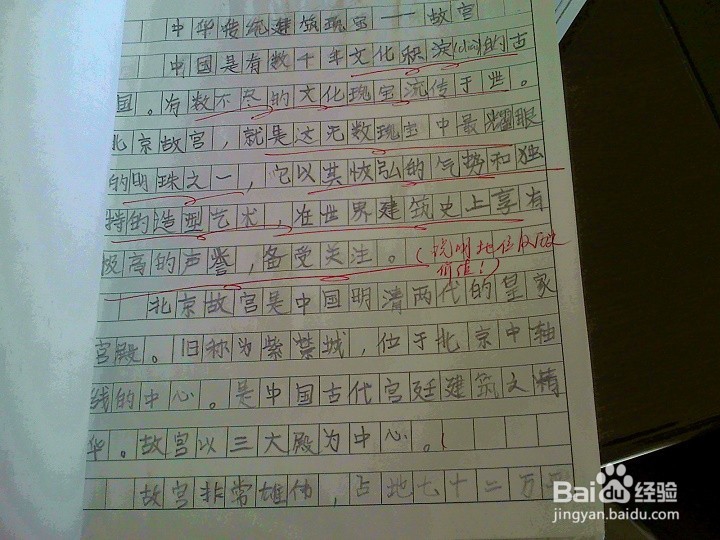 中华传统建筑瑰宝——故宫
中国是有数千年文化积淀的古
国。有数不尽的文化瑰宝流传于世。
北京故宫，就是这无数瑰宝中最耀眼
的明珠之一，它以其恢弘的气势和独
特的造型艺术，在世界建筑史上享有
极高的声誉，备受关注。（说明地位及历史
价值！）
北京故宫是中国明清两代的皇家
宫殿。旧称为紫禁城，位于北京中轴
线的中心。是中国古代宫廷建筑之精
华。故宫以三大殿为中心。
故宫非常雄伟，占地七十二万
Baidu经验
jingyan.baidu.com